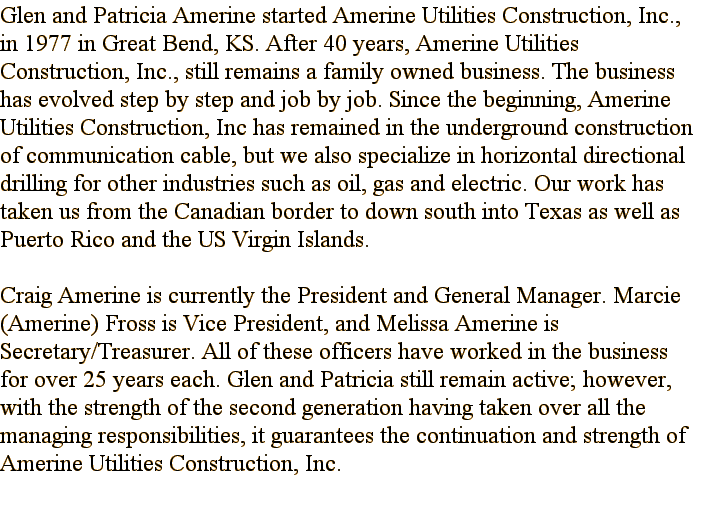 Glen and Patricia Amerine started Amerine Utilities Construction, Inc.,
in 1977 in Great Bend, KS. After 40 years, Amerine Utilities
Construction, Inc., still remains a family owned business. The business
has evolved step by step and job by job. Since the beginning, Amerine
Utilities Construction, Inc has remained in the underground construction
of communication cable, but we also specialize in horizontal directional
drilling for other industries such as oil, gas and electric. Our work has
taken us from the Canadian border to down south into Texas as well as
Puerto Rico and the US Virgin Islands.

Craig Amerine is currently the President and General Manager. Marcie
(Amerine) Fross is Vice President, and Melissa Amerine is
Secretary/Treasurer. All of these officers have worked in the business
for over 25 years each. Glen and Patricia still remain active; however,
with the strength of the second generation having taken over all the
managing responsibilities, it guarantees the continuation and strength of
Amerine Utilities Construction, Inc.